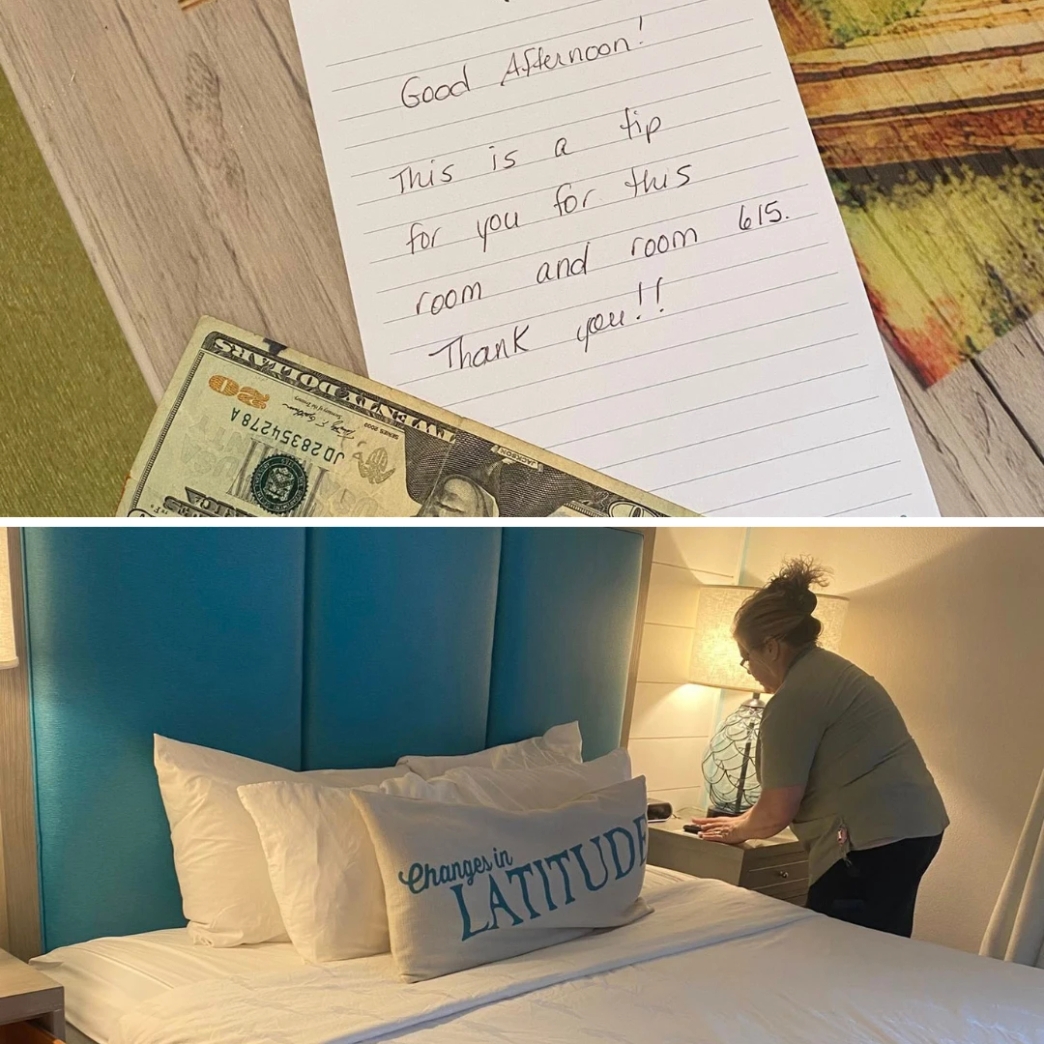 Good Afternoon!
This is a tip
for you for this
room and room 615.
Thank you!!
DOLLARS
20
JD28354278A
SERIES 2009
JACKSON
Changes in
LATITUDE